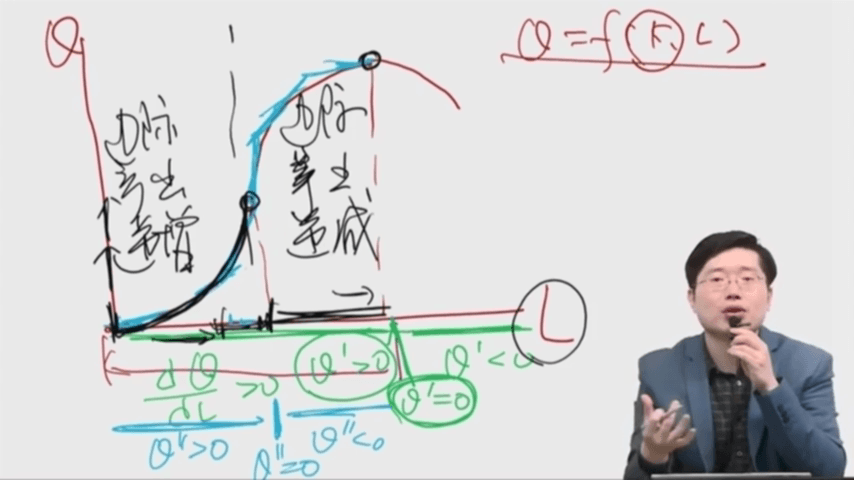 Q
Q=f(K,L)
边际
产出
递增
边际
产出
递减
L
dQ/dL >0
Q'>0
Q'<0
Q'=0
Q">0
Q"=0
Q"<0